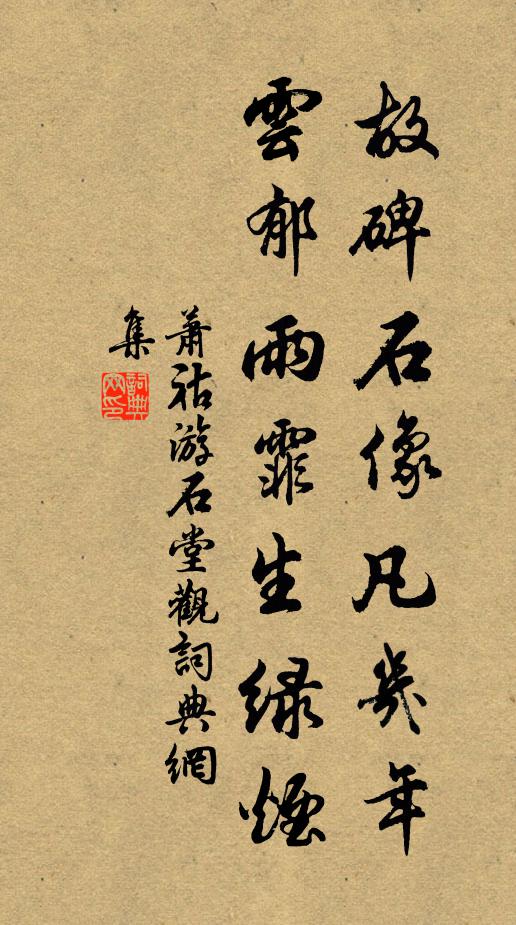 故碑石像凡幾年
雲郁雨霏生綠煙
蕭祜游石堂觀詞典網
集
詞典網印